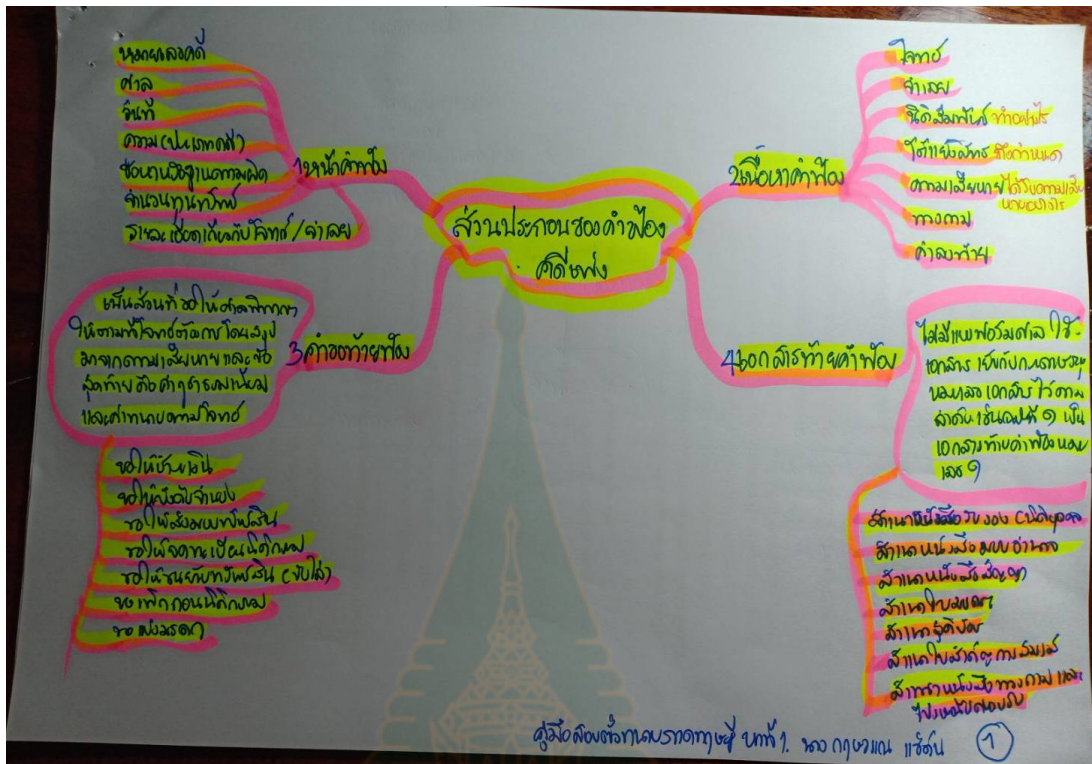 ส่วนประกอบของคำฟ้อง
คดีแพ่ง
1หน้าคำฟ้อง
หมายเลขคดี
ศาล
วันที่
ความ(ประเภทคดี)
ข้อหาหรือฐานความผิด
จำนวนทุนทรัพย์
รายละเอียดเกี่ยวกับโจทก์/จำเลย
2เนื้อหาคำฟ้อง
โจทก์
จำเลย
นิติสัมพันธ์ ทำอะไร
โต้แย้งสิทธิ ถึงกำหนด
ความเสียหาย ได้รับความเสีย
หายอย่างไร
ทวงถาม
คำลงท้าย
3คำขอท้ายฟ้อง
เป็นส่วนที่ขอให้ศาลพิพากษา
ให้ตามที่โจทก์ต้องการ โดยสรุป
มาจากความเสียหาย และข้อ
สุดท้ายคือค่าฤชาธรรมเนียม
และค่าทนายความโจทก์
ขอให้ชำระเงิน
ขอให้บังคับจำนอง
ขอให้ส่งมอบทรัพย์สิน
ขอให้จดทะเบียนนิติกรรม
ขอให้ขนย้ายทรัพย์สิน (ขับไล่)
ขอเพิกถอนนิติกรรม
ขอแบ่งมรดก
4เอกสารท้ายคำฟ้อง
ไม่มีแบบฟอร์มศาล ใช้
เอกสาร เย็บกับกระดาษ
หมายเลขเอกสารไว้ตาม
ลำดับ เช่นฉบับที่ ๑ เป็น
เอกสารท้ายคำฟ้องหมาย
เลข ๑
สำเนาหนังสือรับรอง (นิติบุคคล
สำเนาหนังสือมอบอำนาจ
สำเนาหนังสือสัญญา
สำเนาใบมรณะ
สำเนาสูติบัตร
สำเนาใบสำคัญการสมรส
สำเนาหนังสือทวงถาม และ
ใบตอบรับ
คู่มือสอบตั๋วทนายภาคทฤษฎี หน้า 1. นาง กฤษวแณ แซ่ตัน 1